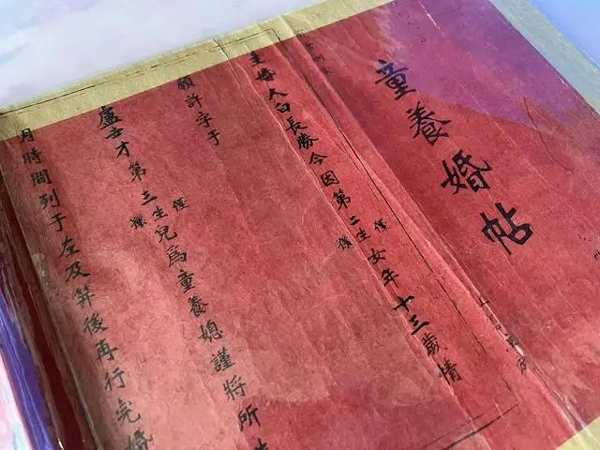 童養婚帖
主婚人白長勝今因第二生女年十三歲情
願許字于
盧才第三生兒爲童養媳謹將所
月時間列于左及笄後再行完婚